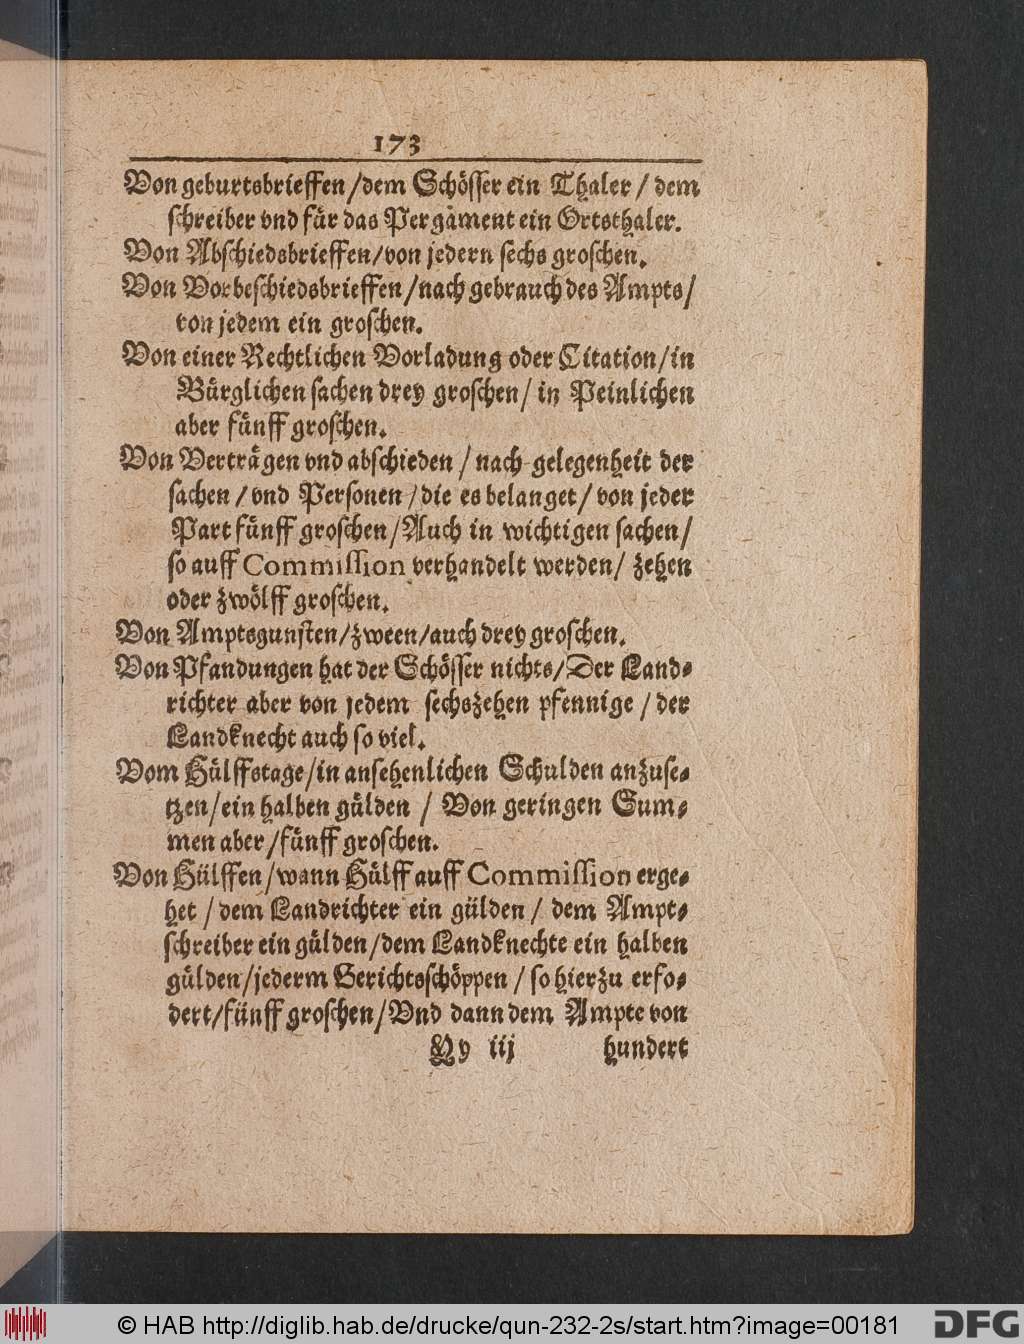 173
Von geburtsbrieffen/dem Schösser ein Thaler/ dem
schreiber vnd für das Pergament ein Ortsthaler.
Von Abschiedsbrieffen/von jedern sechs groschen.
Von Vorbeschiedsbrieffen/nach gebrauch des Ampts/
von jedem ein groschen.
Von einer Rechtlichen Vorladung oder Citation/in
Bürglichen sachen drey groschen/ in Peinlichen
aber fünff groschen.
Von Verträgen vnd abschieden/ nach gelegenheit der
sachen/vnd Personen/die es belanget/ von jeder
Part fünff groschen/Auch in wichtigen sachen/
so auff Commission verhandelt werden/ zehen
oder zwölff groschen.
Von Amptsgunsten/zween/auch drey groschen.
Von Pfandungen hat der Schösser nichts/Der Land⸗
richter aber von jedem sechszehen pfennige/ der
Landknecht auch so viel.
Vom Hülffstage/in ansehenlichen Schulden anzuse⸗
tzen/ein halben gülden / Von geringen Sum⸗
men aber/fünff groschen.
Von Hülffen/wann Hülff auff Commission erge⸗
het / dem Landrichter ein gülden / dem Ampt⸗
schreiber ein gülden/dem Landknechte ein halben
gülden/jederm Gerichtsschöppen / so hierzu erfo⸗
dert/fünff groschen/Vnd dann dem Ampte von
Yy iij hundert
© HAB http://diglib.hab.de/drucke/qun-232-2s/start.htm?image=00181
DFG